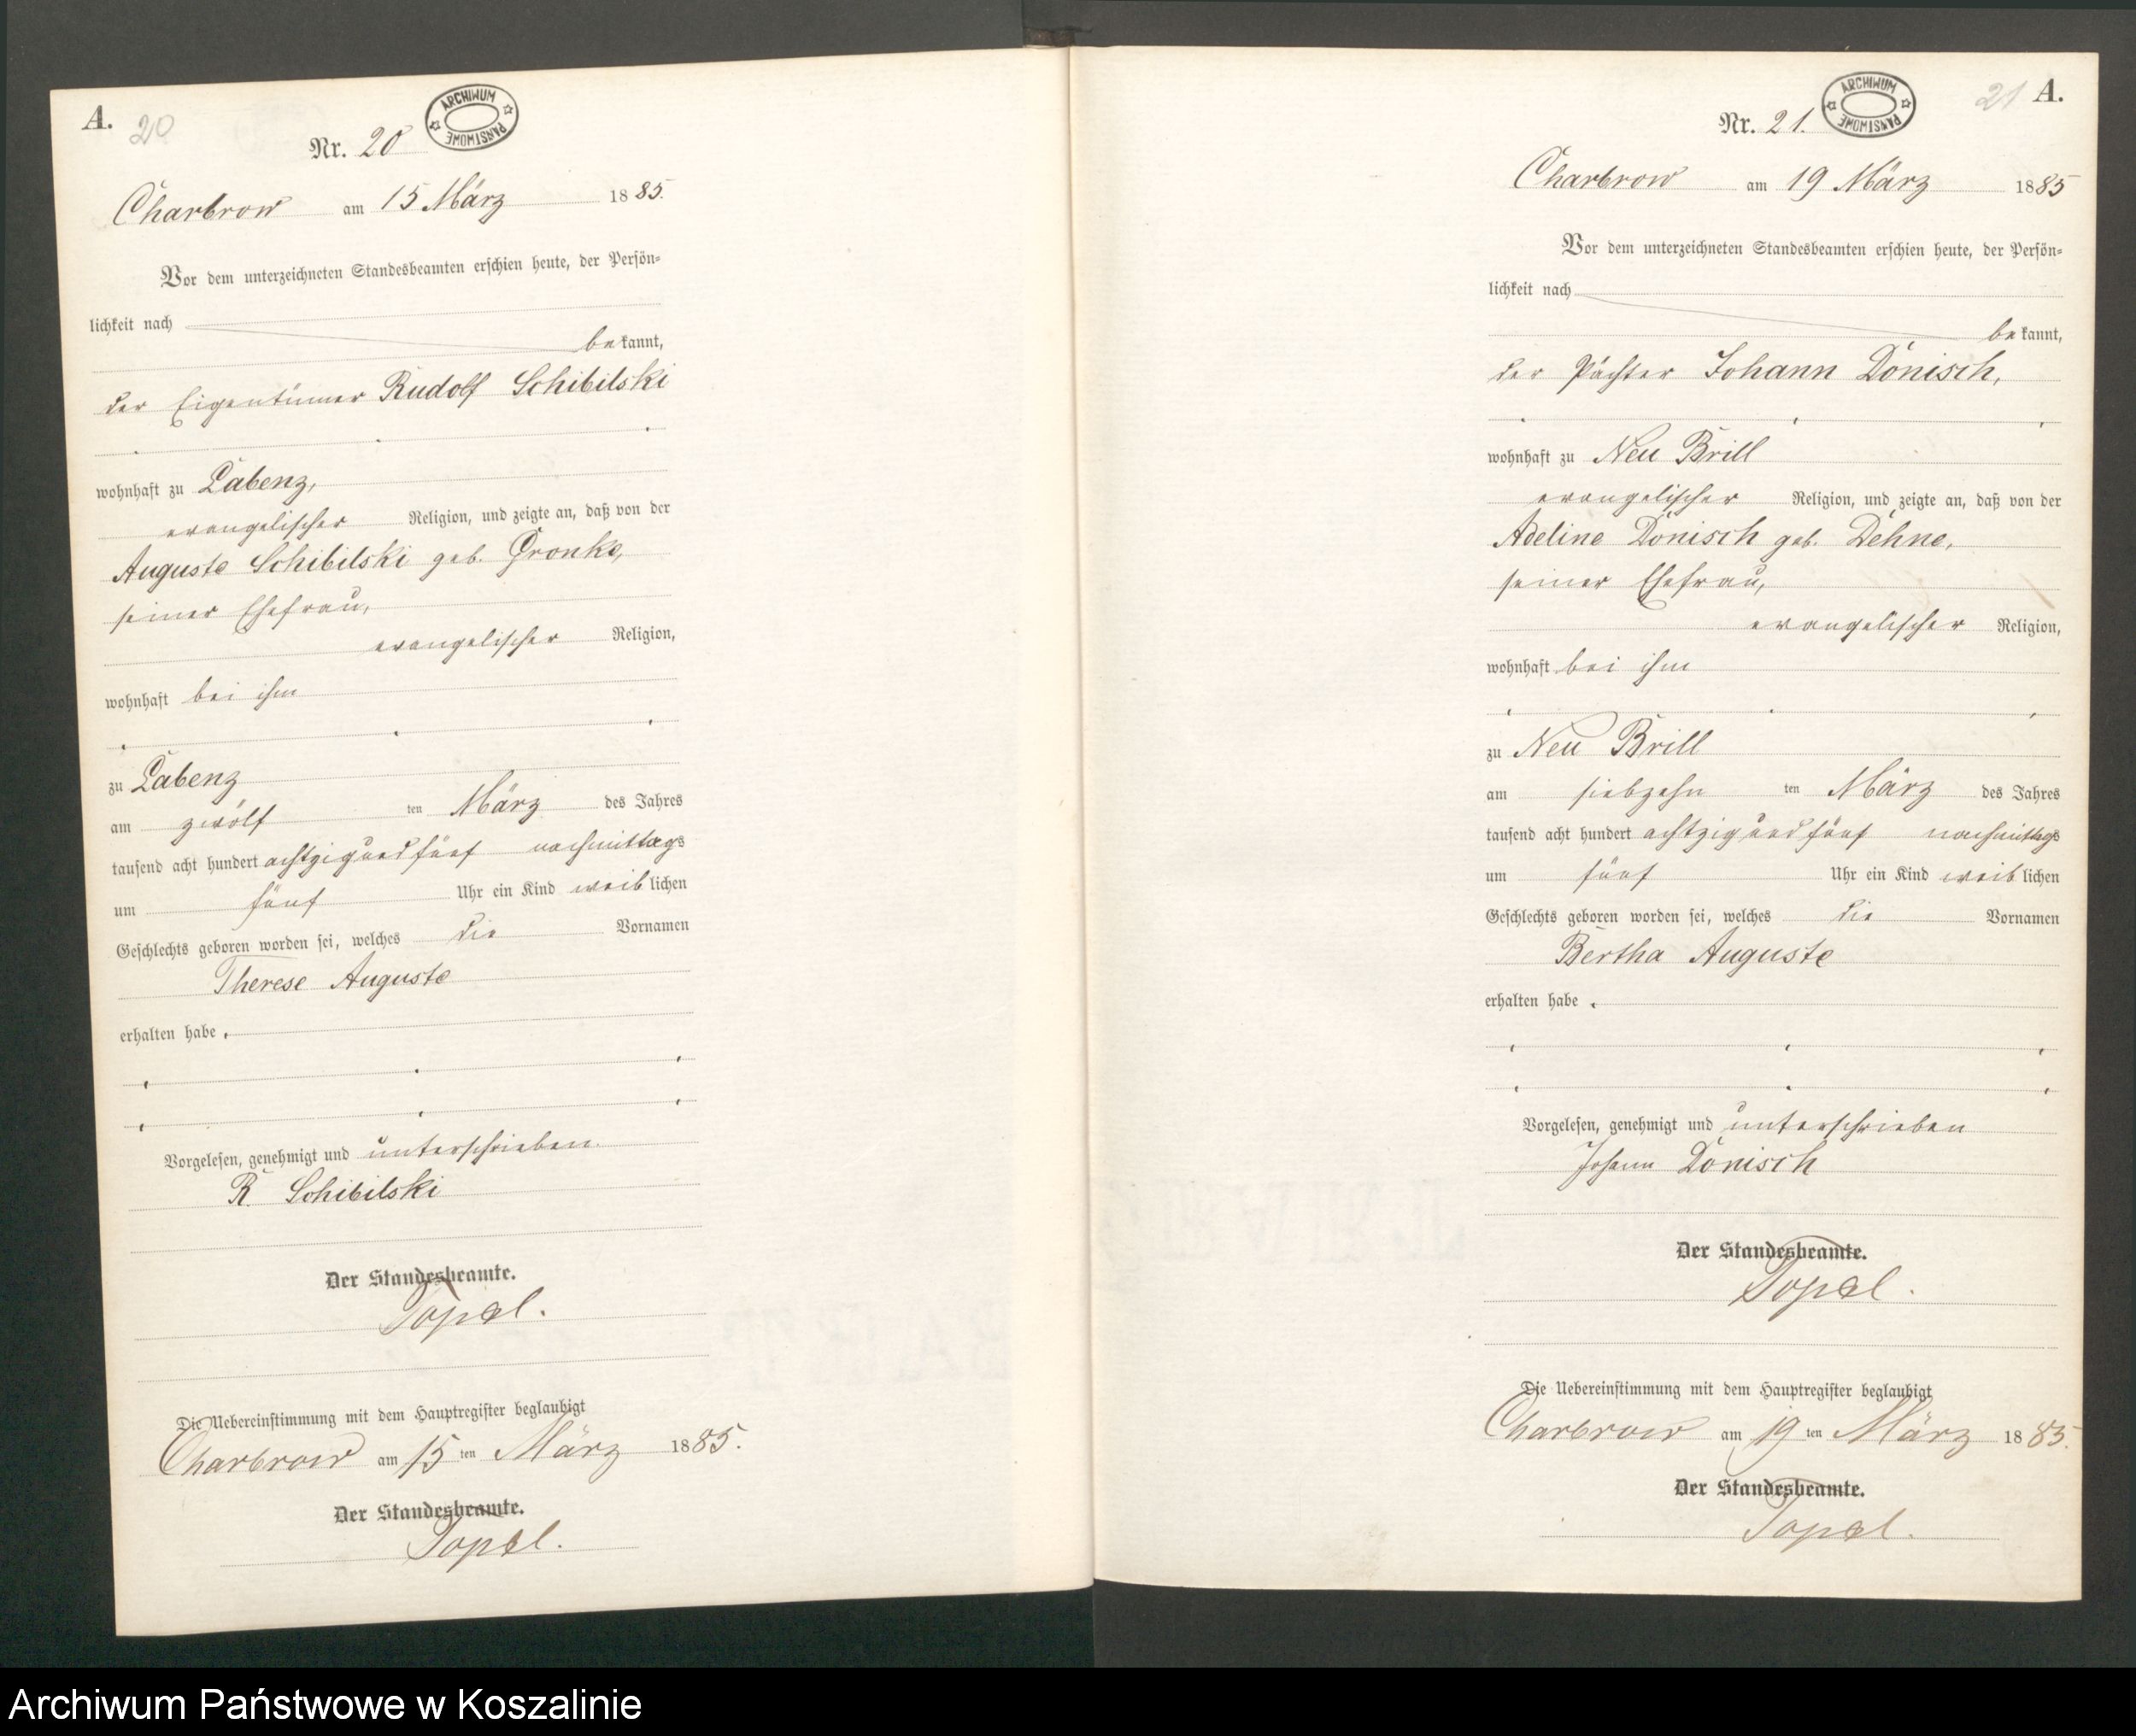 A.
20
Nr. 20
ARCHIWUM PAŃSTWOWE
Charbrow am 15 März 1885.
Vor dem unterzeichneten Standesbeamten erschien heute, der Persön-
lichkeit nach
bekannt,
der Eigentümer Rudolf Schibilski
wohnhaft zu Labenz,
evangelischer Religion, und zeigte an, daß von der
Auguste Schibilski geb. Gronke,
seiner Ehefrau,
evangelischer Religion,
wohnhaft bei ihm
zu Labenz
am zwölf ten März des Jahres
tausend acht hundert achtzig und fünf nachmittags
um fünf Uhr ein Kind weiblichen
Geschlechts geboren worden sei, welches die Vornamen
Therese Auguste
erhalten habe.
Vorgelesen, genehmigt und unterschrieben.
R. Schibilski
Der Standesbeamte.
Topel.
Die Uebereinstimmung mit dem Hauptregister beglaubigt
Charbrow am 15 ten März 1885.
Der Standesbeamte.
Topel.
21 A.
Nr. 21.
ARCHIWUM PAŃSTWOWE
Charbrow am 19 März 1885
Vor dem unterzeichneten Standesbeamten erschien heute, der Persön-
lichkeit nach
bekannt,
der Pächter Johann Dönisch,
wohnhaft zu Neu Brill
evangelischer Religion, und zeigte an, daß von der
Adeline Dönisch geb. Dehne,
seiner Ehefrau,
evangelischer Religion,
wohnhaft bei ihm
zu Neu Brill
am siebzehn ten März des Jahres
tausend acht hundert achtzig und fünf nachmittags
um fünf Uhr ein Kind weiblichen
Geschlechts geboren worden sei, welches die Vornamen
Bertha Auguste
erhalten habe.
Vorgelesen, genehmigt und unterschrieben
Johann Dönisch
Der Standesbeamte.
Topel.
Die Uebereinstimmung mit dem Hauptregister beglaubigt
Charbrow am 19 ten März 1885.
Der Standesbeamte.
Topel.
Archiwum Państwowe w Koszalinie